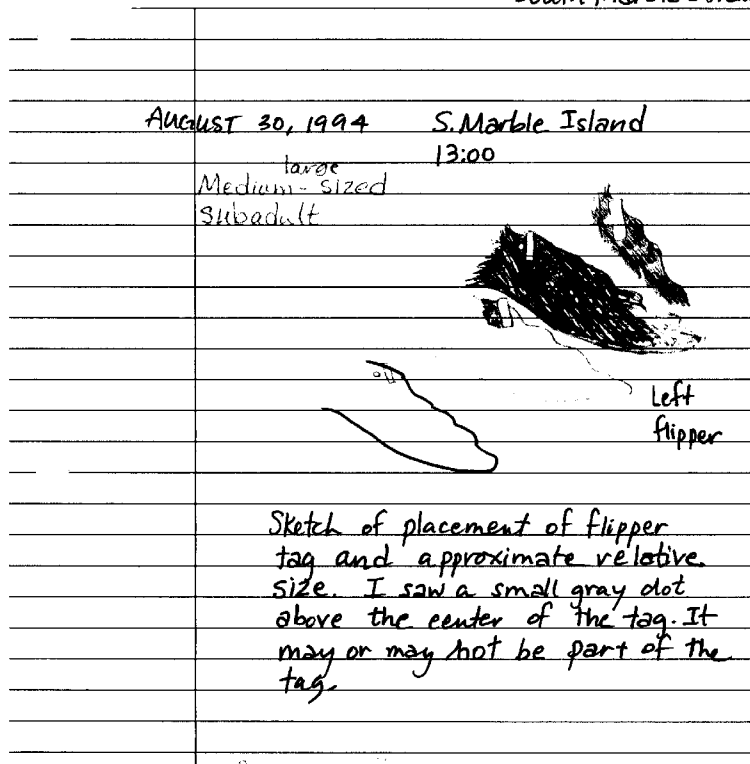 AUGUST 30, 1994 S. Marble Island
13:00
large
Medium-sized
Subadult
Left
flipper
Sketch of placement of flipper
tag and approximate relative
size. I saw a small gray dot
above the center of the tag. It
may or may not be part of the
tag.